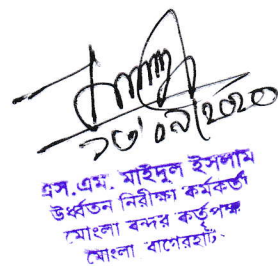 ১৩/০৯/2020
এস.এম. মাইদুল ইসলাম
উর্ধ্বতন নিরীক্ষা কর্মকর্তা
মোংলা বন্দর কর্তৃপক্ষ
মোংলা বাগেরহাট।